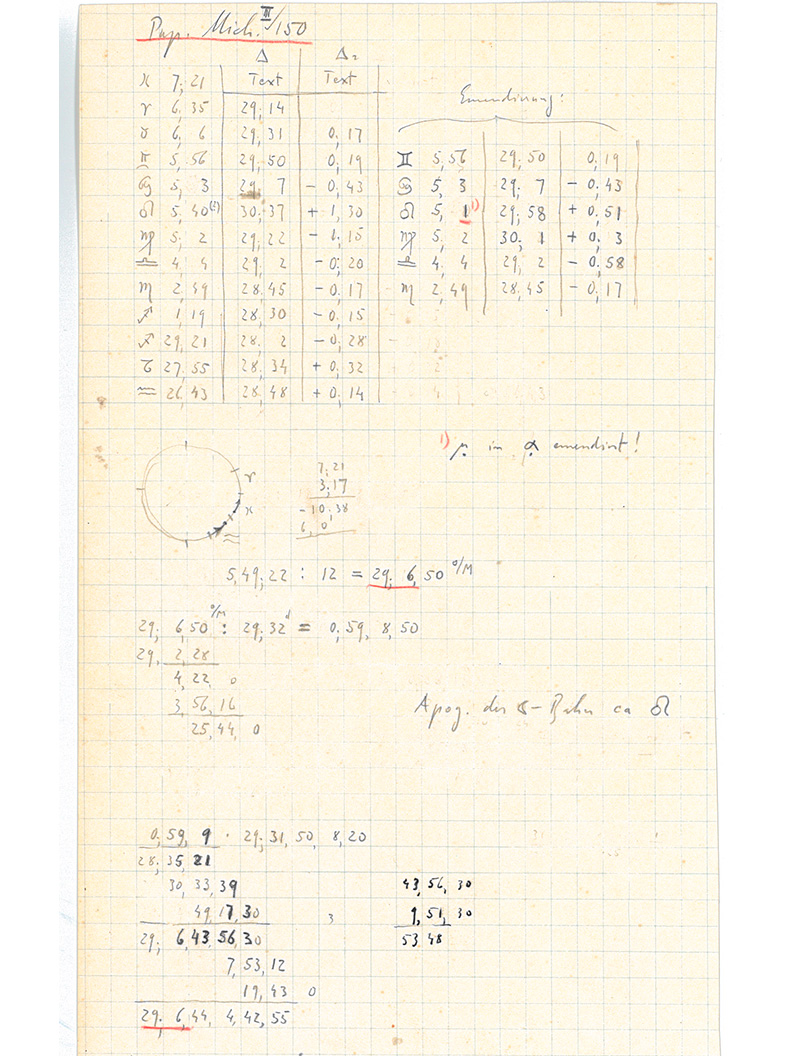 Pap. Mich. III/150
Δ Δ₂
♓ 7;21 Text Text
♈ 6,35 29;14
♉ 6, 6 29;31 0;17
♊ 5,56 29;50 0;19
♋ 5; 3 29; 7 − 0;43
♌ 5,40(?) 30;37 + 1,30
♍ 5; 2 29;22 − 1,15
♎ 4, 4 29; 2 − 0;20
♏ 2,49 28,45 − 0,17
♐ 1,19 28,30 − 0,15
♐ 29,21 28, 2 − 0;28
♑ 27,55 28,34 + 0,32
♒ 26,43 28,48 + 0,14
Emendierung:
♊ 5,56 29;50 0;19
♋ 5, 3 29; 7 − 0;43
♌ 5, 1 ¹⁾ 29,58 + 0,51
♍ 5, 2 30, 1 + 0, 3
♎ 4, 4 29, 2 − 0,58
♏ 2,49 28,45 − 0,17
1) μ in α emendiert!
♈
♓
♒
7;21
3;17
−10;38
6, 0
5,49;22 : 12 = 29; 6,50 °/M
29; 6,50 °/M : 29;32 d = 0;59, 8,50
29, 2,28
4,22 0
3,56,16
25,44, 0
Apog. der ☾-Bahn ca ♌
0;59, 9 · 29;31,50, 8,20
28;35,21
30,33,39
49,17,30 3
29; 6,43,56,30
7,53,12
19,43 0
29; 6,44, 4,42,55
43,56,30
9,51,30
53,48